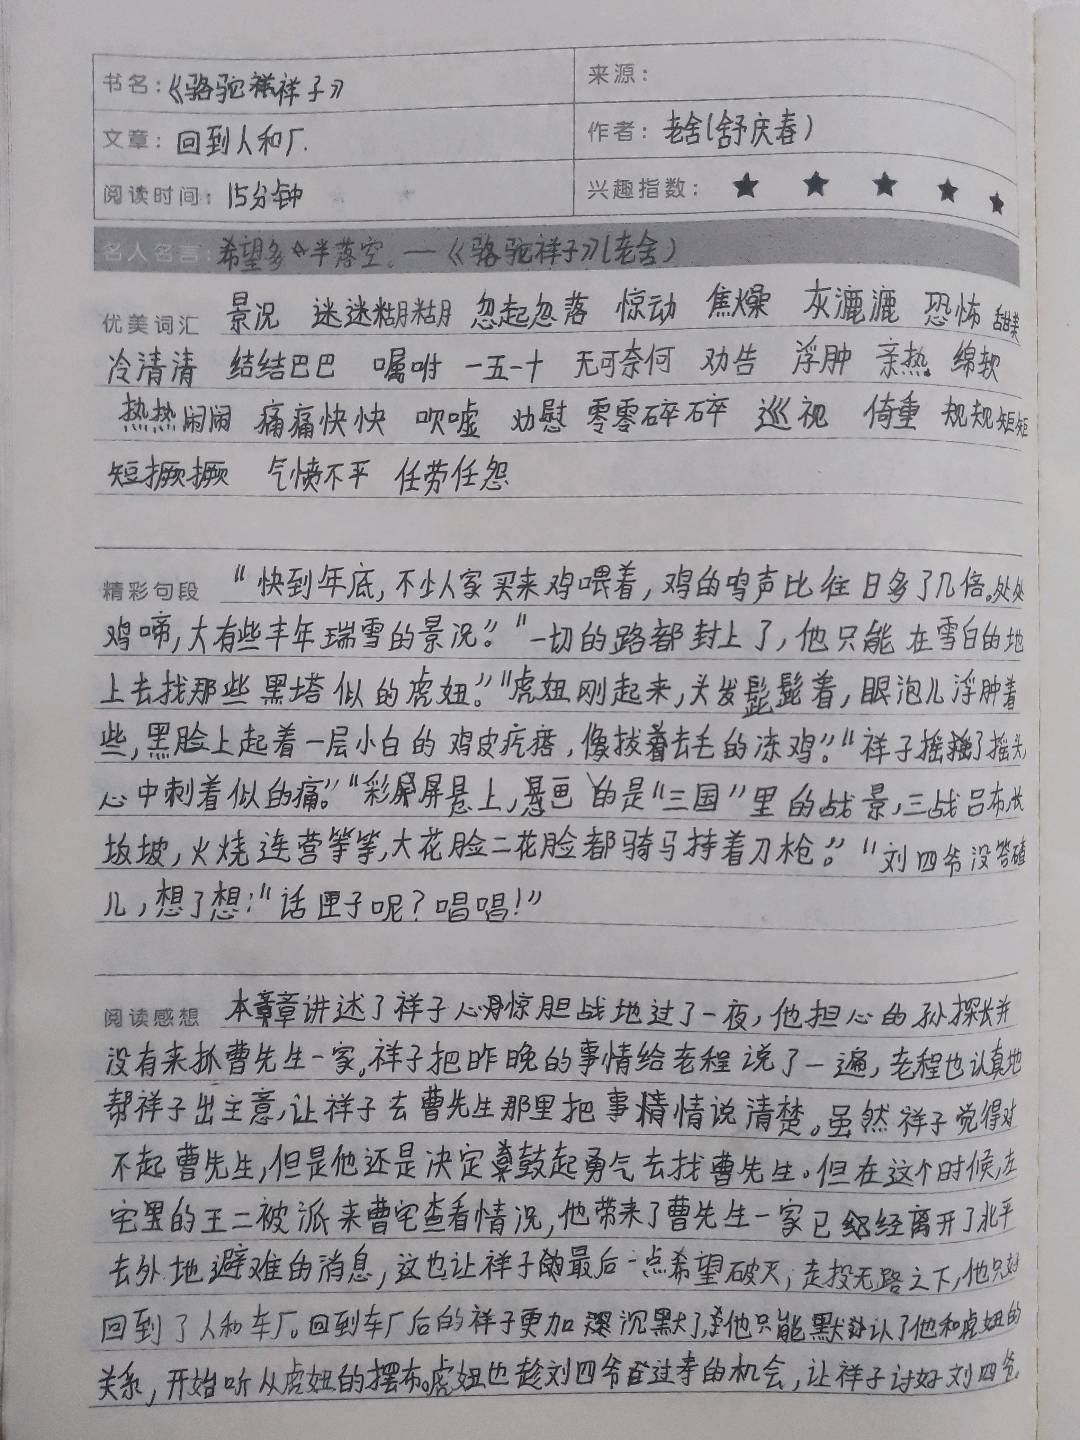 书名：《骆驼祥子》
来源：
文章：回到人和厂.
作者：老舍(舒庆春）
阅读时间：15分钟
兴趣指数：★ ★ ★ ★ ★
名人名言：希望多半落空。—《骆驼祥子》(老舍）
优美词汇 景况 迷迷糊糊 忽起忽落 惊动 焦燥 灰漉漉 恐怖 甜美
冷清清 结结巴巴 嘱咐 一五一十 无可奈何 劝告 浮肿 亲热 绵软
热热闹闹 痛痛快快 吹嘘 劝慰 零零碎碎 巡视 倚重 规规矩矩
短撅撅 气愤不平 任劳任怨
精彩句段 “快到年底，不少人家买来鸡喂着，鸡的鸣声比往日多了几倍。处处
鸡啼，大有些丰年瑞雪的景况。”“一切的路都封上了，他只能在雪白的地
上去找那些黑塔似的虎妞。”“虎妞刚起来，头发髭髭着，眼泡儿浮肿着
些，黑脸上起着一层小白的鸡皮疙瘩，像拔着去毛的冻鸡。”“祥子摇摇了摇头，
心中刺着似的痛。”“彩屏屏悬上，悬画的是“三国”里的战景，三战吕布，长
坂坡，火烧连营等等，大花脸二花脸都骑马持着刀枪。”“刘四爷没答碴
儿，想了想：“话匣子呢？唱唱！”
阅读感想 本章讲述了祥子心惊胆战地过了一夜，他担心的孙探长并
没有来抓曹先生一家。祥子把昨晚的事情给老程说了一遍，老程也认真地
帮祥子出主意，让祥子去曹先生那里把事情说清楚。虽然祥子觉得对
不起曹先生，但是他还是决定鼓起勇气去找曹先生。但在这个时候，左
宅里的王二被派来曹宅查看情况，他带来了曹先生一家已经离开了北平
去外地避难的消息，这也让祥子的最后一点希望破灭，走投无路之下，他只好
回到了人和车厂。回到车厂后的祥子更加沉默了，他只能默认了他和虎妞的
关系，开始听从虎妞的摆布。虎妞也趁刘四爷在过寿的机会，让祥子讨好刘四爷